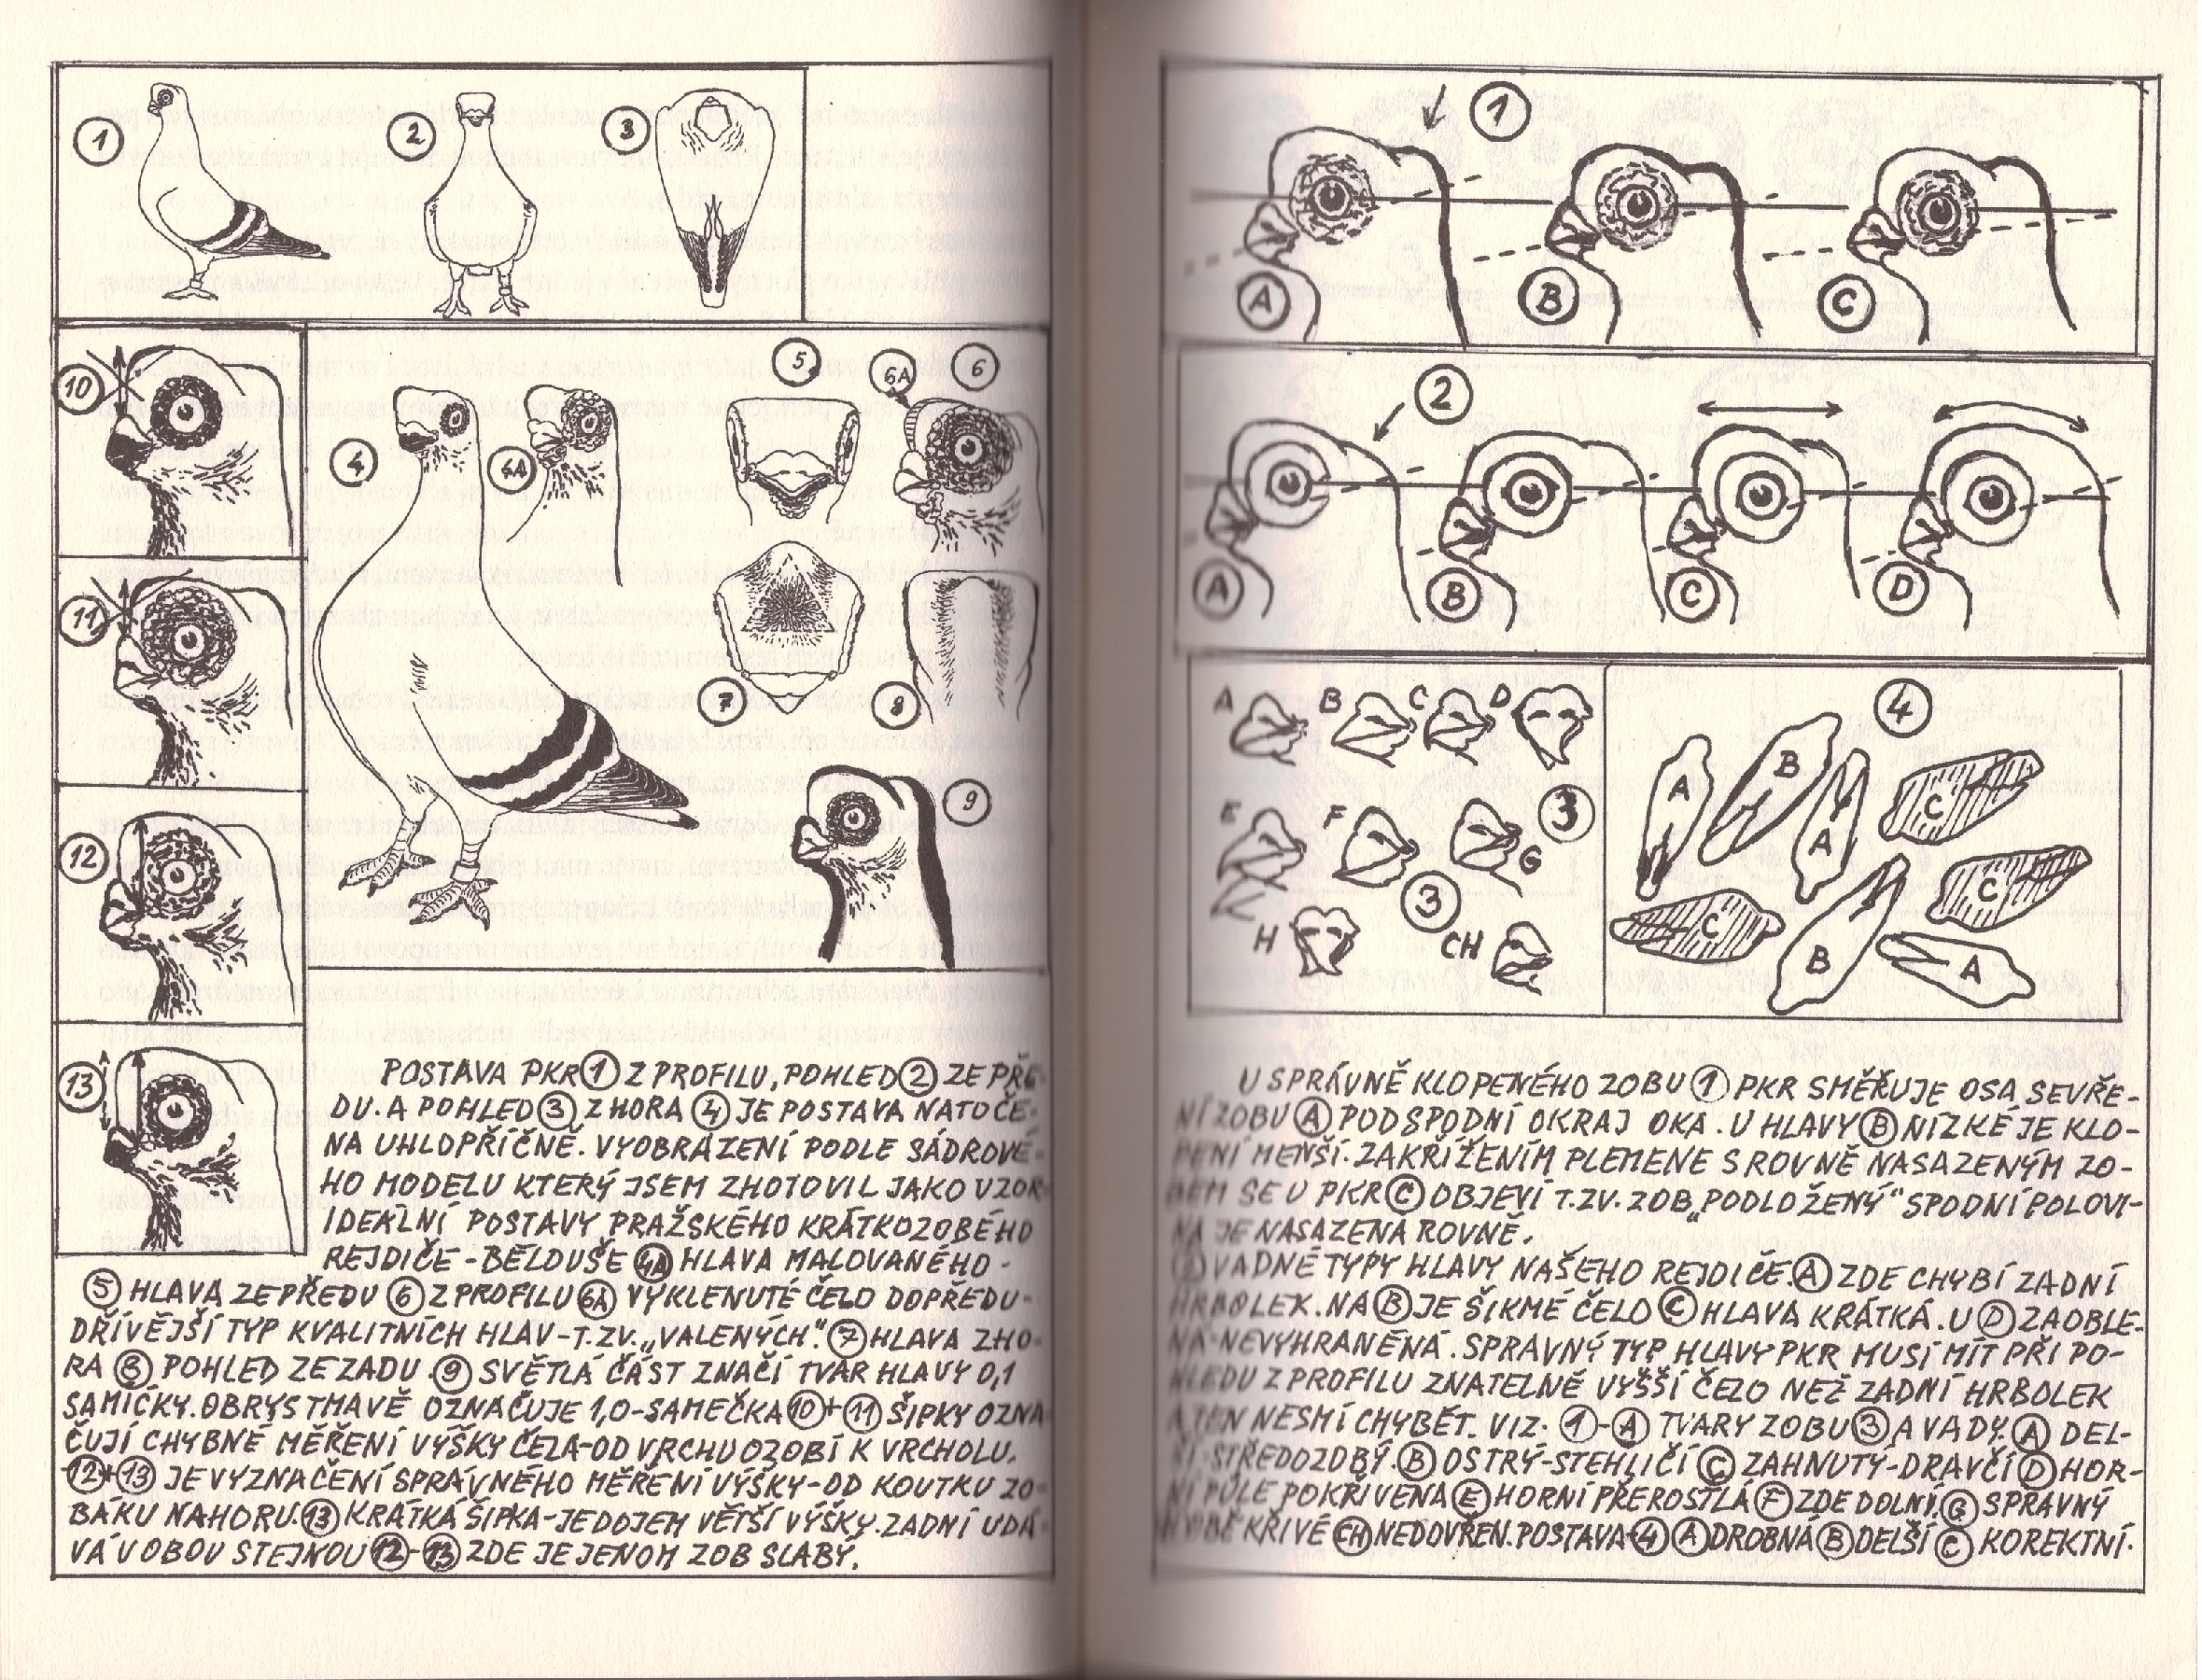 1
2
3
10
11
12
13
4
4A
5
6A
6
7
8
9
POSTAVA PKR 1 Z PROFILU, POHLED 2 ZE PŘE-
DU. A POHLED 3 Z HORA 4 JE POSTAVA NATOČE-
NA UHLOPŘÍČNĚ. VYOBRAZENÍ PODLE SÁDROVÉ-
HO MODELU KTERÝ JSEM ZHOTOVIL JAKO VZOR
IDEÁLNÍ POSTAVY PRAŽSKÉHO KRÁTKOZOBÉHO
REJDIČE - BĚLOUŠE 4A HLAVA MALOVANÉHO -
5 HLAVA ZEPŘEDU 6 Z PROFILU 6A VYKLENUTÉ ČELO DOPŘEDU -
DŘÍVĚJŠÍ TYP KVALITNÍCH HLAV - T.ZV. „VALENÝCH". 7 HLAVA ZHO-
RA 8 POHLED ZEZADU. 9 SVĚTLÁ ČÁST ZNAČÍ TVAR HLAVY 0,1
SAMIČKY. OBRYS TMAVĚ OZNAČUJE 1,0-SAMEČKA 10+11 ŠIPKY OZNA-
ČUJÍ CHYBNÉ MĚŘENÍ VÝŠKY ČELA-OD VRCHU OZOBÍ K VRCHOLU.
12+13 JE VYZNAČENÍ SPRÁVNÉHO MĚŘENÍ VÝŠKY-OD KOUTKU ZO-
BÁKU NAHORU. 13 KRÁTKÁ ŠIPKA-JE DOJEM VĚTŠÍ VÝŠKY. ZADNÍ UDÁ-
VÁ U OBOU STEJNOU 12-13 ZDE JE JENOM ZOB SLABÝ.
1
A
B
C
2
A
B
C
D
A B C D
E F G 3
H 3 CH
4
A B A C
C C
B A
U SPRÁVNĚ KLOPENÉHO ZOBU 1 PKR SMĚŘUJE OSA SEVŘE-
NÍ ZOBU A POD SPODNÍ OKRAJ OKA. U HLAVY B NÍZKÉ JE KLO-
PENÍ MENŠÍ. ZAKŘÍŽENÍM PLEMENE S ROVNĚ NASAZENÝM ZO-
BEM SE U PKR C OBJEVÍ T.ZV. ZOB „PODLOŽENÝ" SPODNÍ POLOVI-
NA JE NASAZENÁ ROVNĚ.
VADNÉ TYPY HLAVY NAŠEHO REJDIČE. A ZDE CHYBÍ ZADNÍ
HRBOLEK. NA B JE ŠIKMÉ ČELO C HLAVA KRÁTKÁ. U D ZAOBLE-
NÁ-NEVYHRANĚNÁ. SPRÁVNÝ TYP HLAVY PKR MUSÍ MÍT PŘI PO-
HLEDU Z PROFILU ZNATELNĚ VYŠŠÍ ČELO NEŽ ZADNÍ HRBOLEK
A TEN NESMÍ CHYBĚT. VIZ. 1-A TVARY ZOBU 3 A VADY. A DEL-
ŠÍ-STŘEDOZOBÝ. B OSTRÝ-STEHLIČÍ C ZAHNUTÝ-DRAVČÍ D HOR-
NÍ PŮLE POKŘIVENA E HORNÍ PŘEROSTLÁ F ZDE DOLNÍ. G SPRÁVNÝ
KŘIVÉ CH NEDOVŘEN. POSTAVA-4 A DROBNÁ B DELŠÍ C KOREKTNÍ.